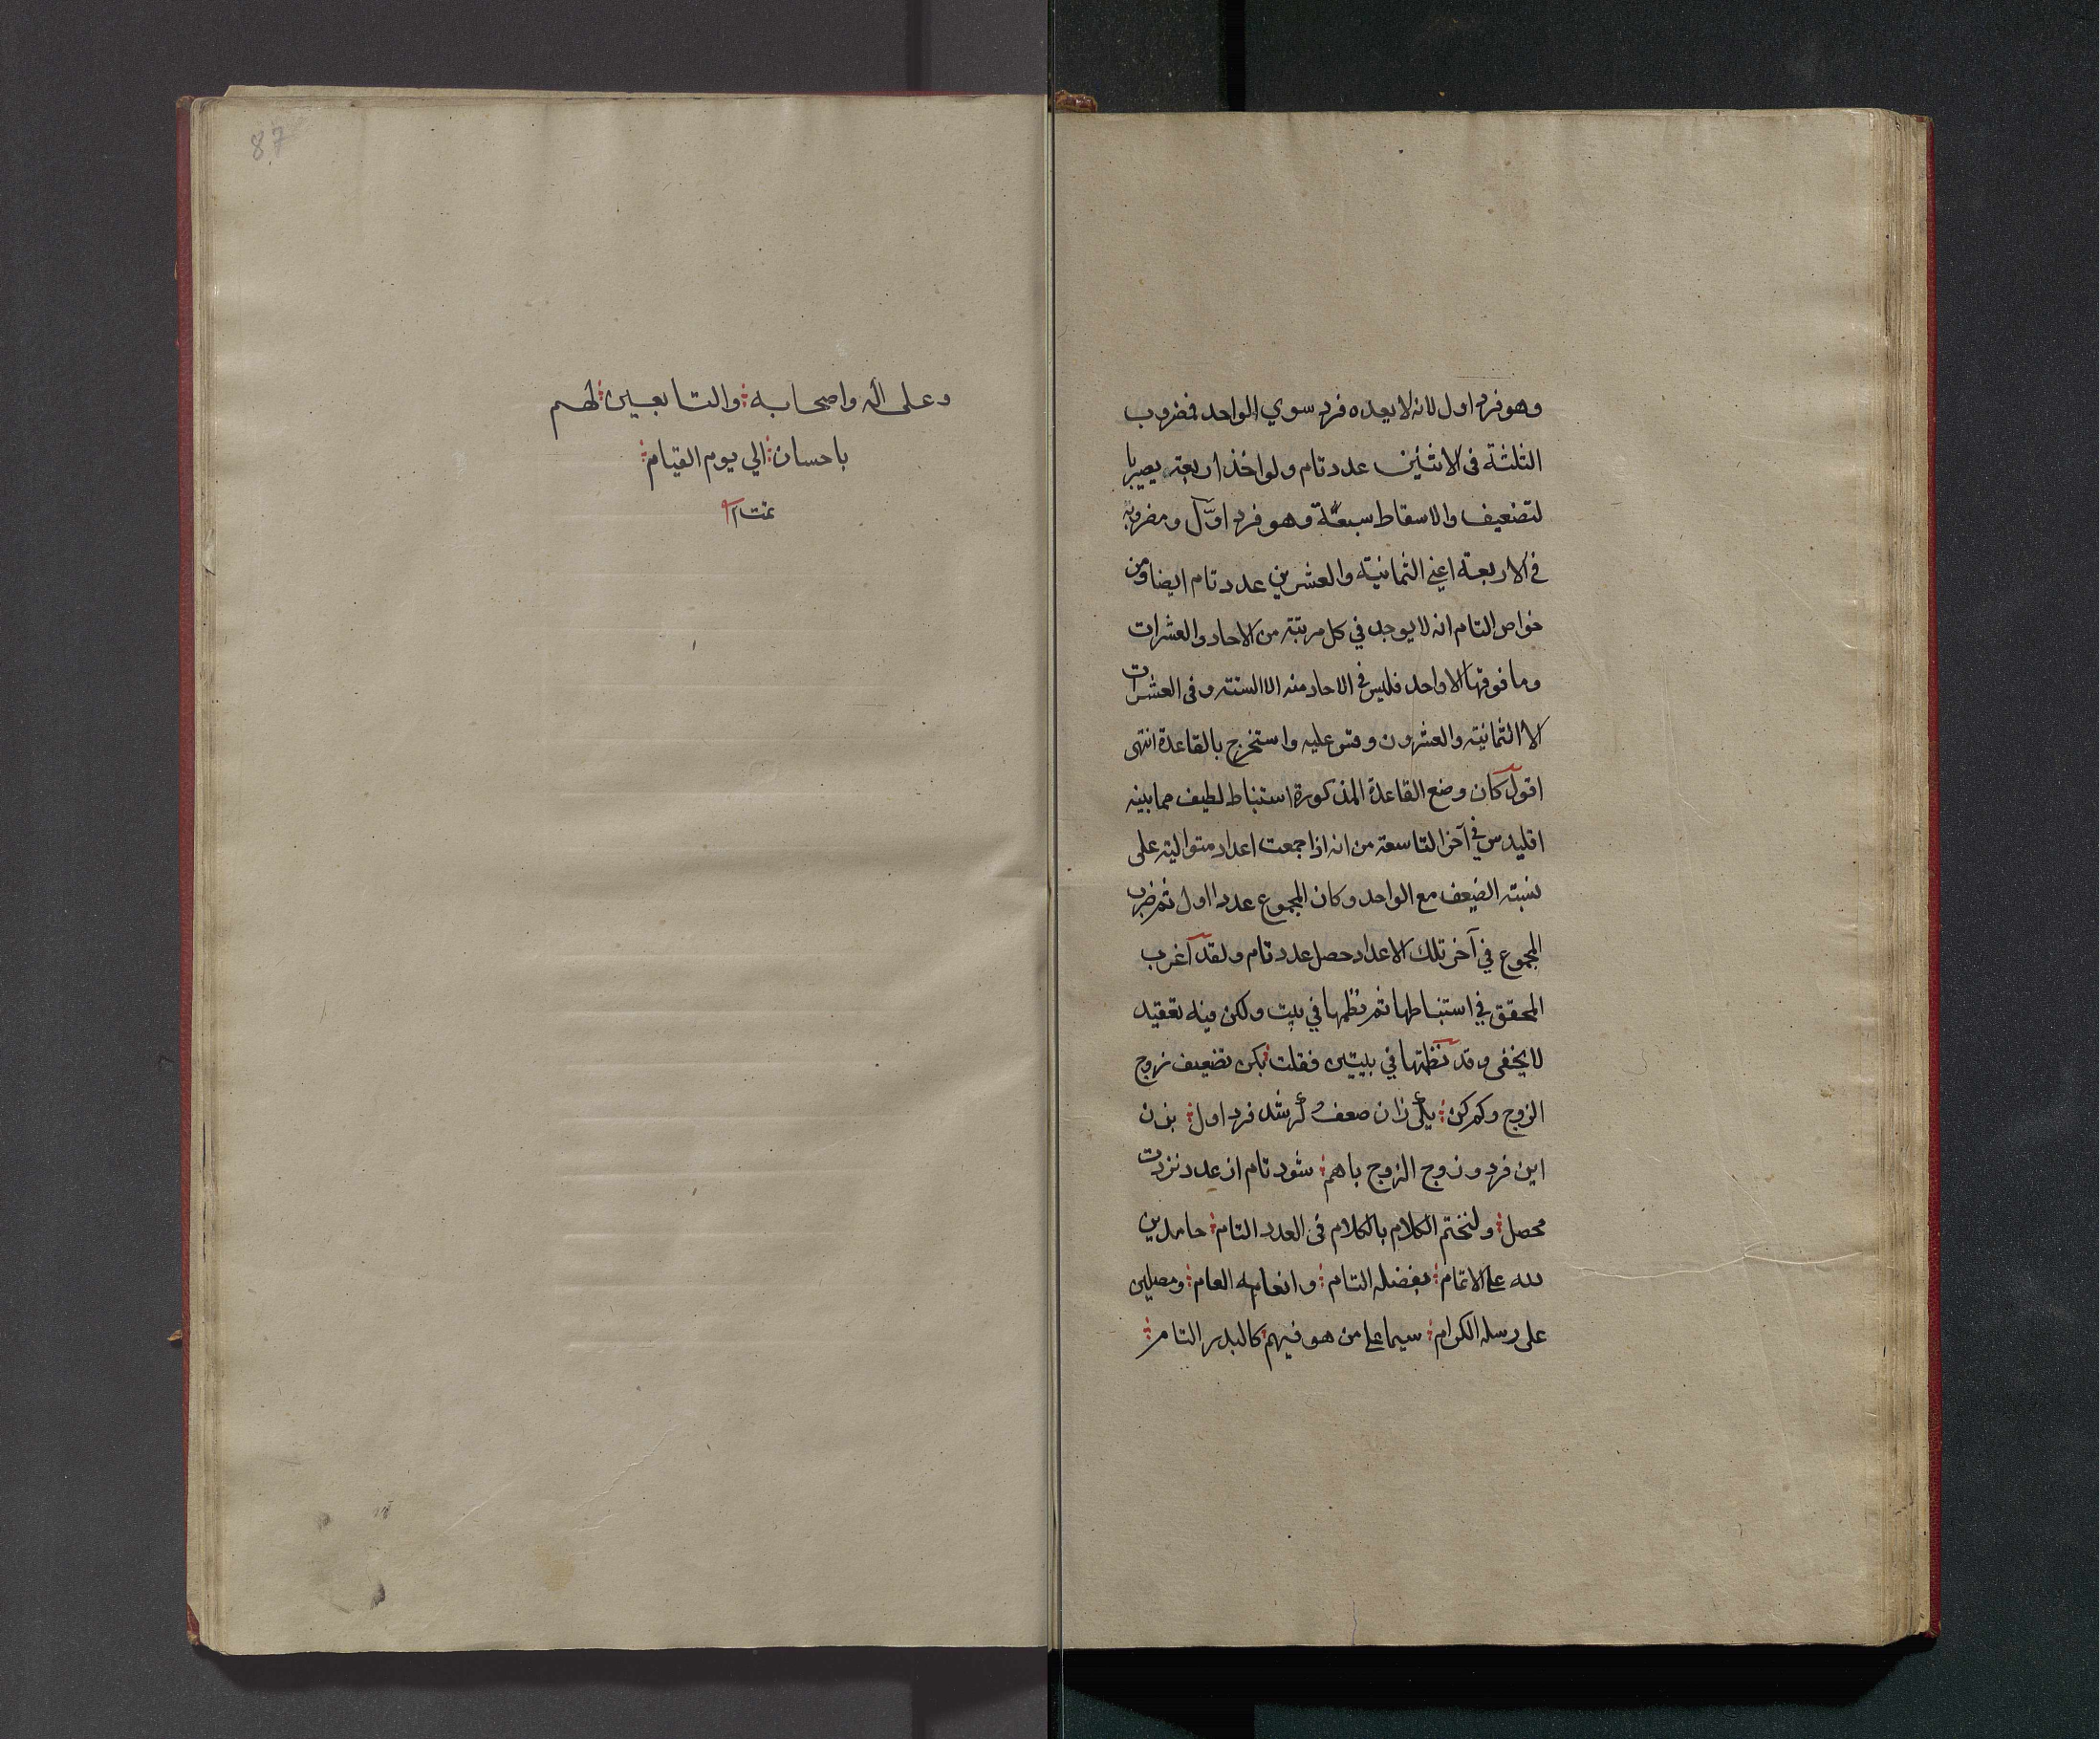 وهو فرد اول لانه لا يعده فرد سوي الواحد فمضروب
الثلثة فى الاثنين عدد تام ولو اخذ اربعة يصير با
لتضعيف والاسقاط سبعة وهو فرد اوّل ومضروبه
فى الاربعة اعني الثمانية والعشرين عدد تام ايضا ومن
خواص التام انه لا يوجد في كل مرتبة من الاحاد والعشرات
وما فوقها الا واحد فليس في الاحاد منه الا الستة وفى العشرات
الا الثمانية والعشرون وقس عليه واستخرج بالقاعدة انتهى
اقول كان وضع القاعدة المذكورة استنباط لطيف مما بينه
اقليدس في آخر التاسعة من انه اذا جمعت اعداد متوالية على
نسبة الضعف مع الواحد وكان المجموع عددا اول ثم ضرب
المجموع في آخر تلك الاعداد حصل عدد تام ولقد اغرب
المحقق في استنباطها ثم نظمها في بيت ولكن فيه تعقيد
لا يخفى وقد نظمتها في بيتين فقلت بكن تضعيف زوج
الزوج وكم كن يكى زان ضعف گر شد فرد اول بزن
اين فرد وزوج الزوج باهم شود تام از عدد نزدت
محصل ولنختم الكلام بالكلام فى العدد التام حامدين
لله على الاتمام بفضله التام وانعامه العام ومصلين
على رسله الكرام سيما على من هو فيهم كالبدر التام
87
وعلى آله واصحابه والتابعين لهم
باحسان الي يوم القيام
تمت